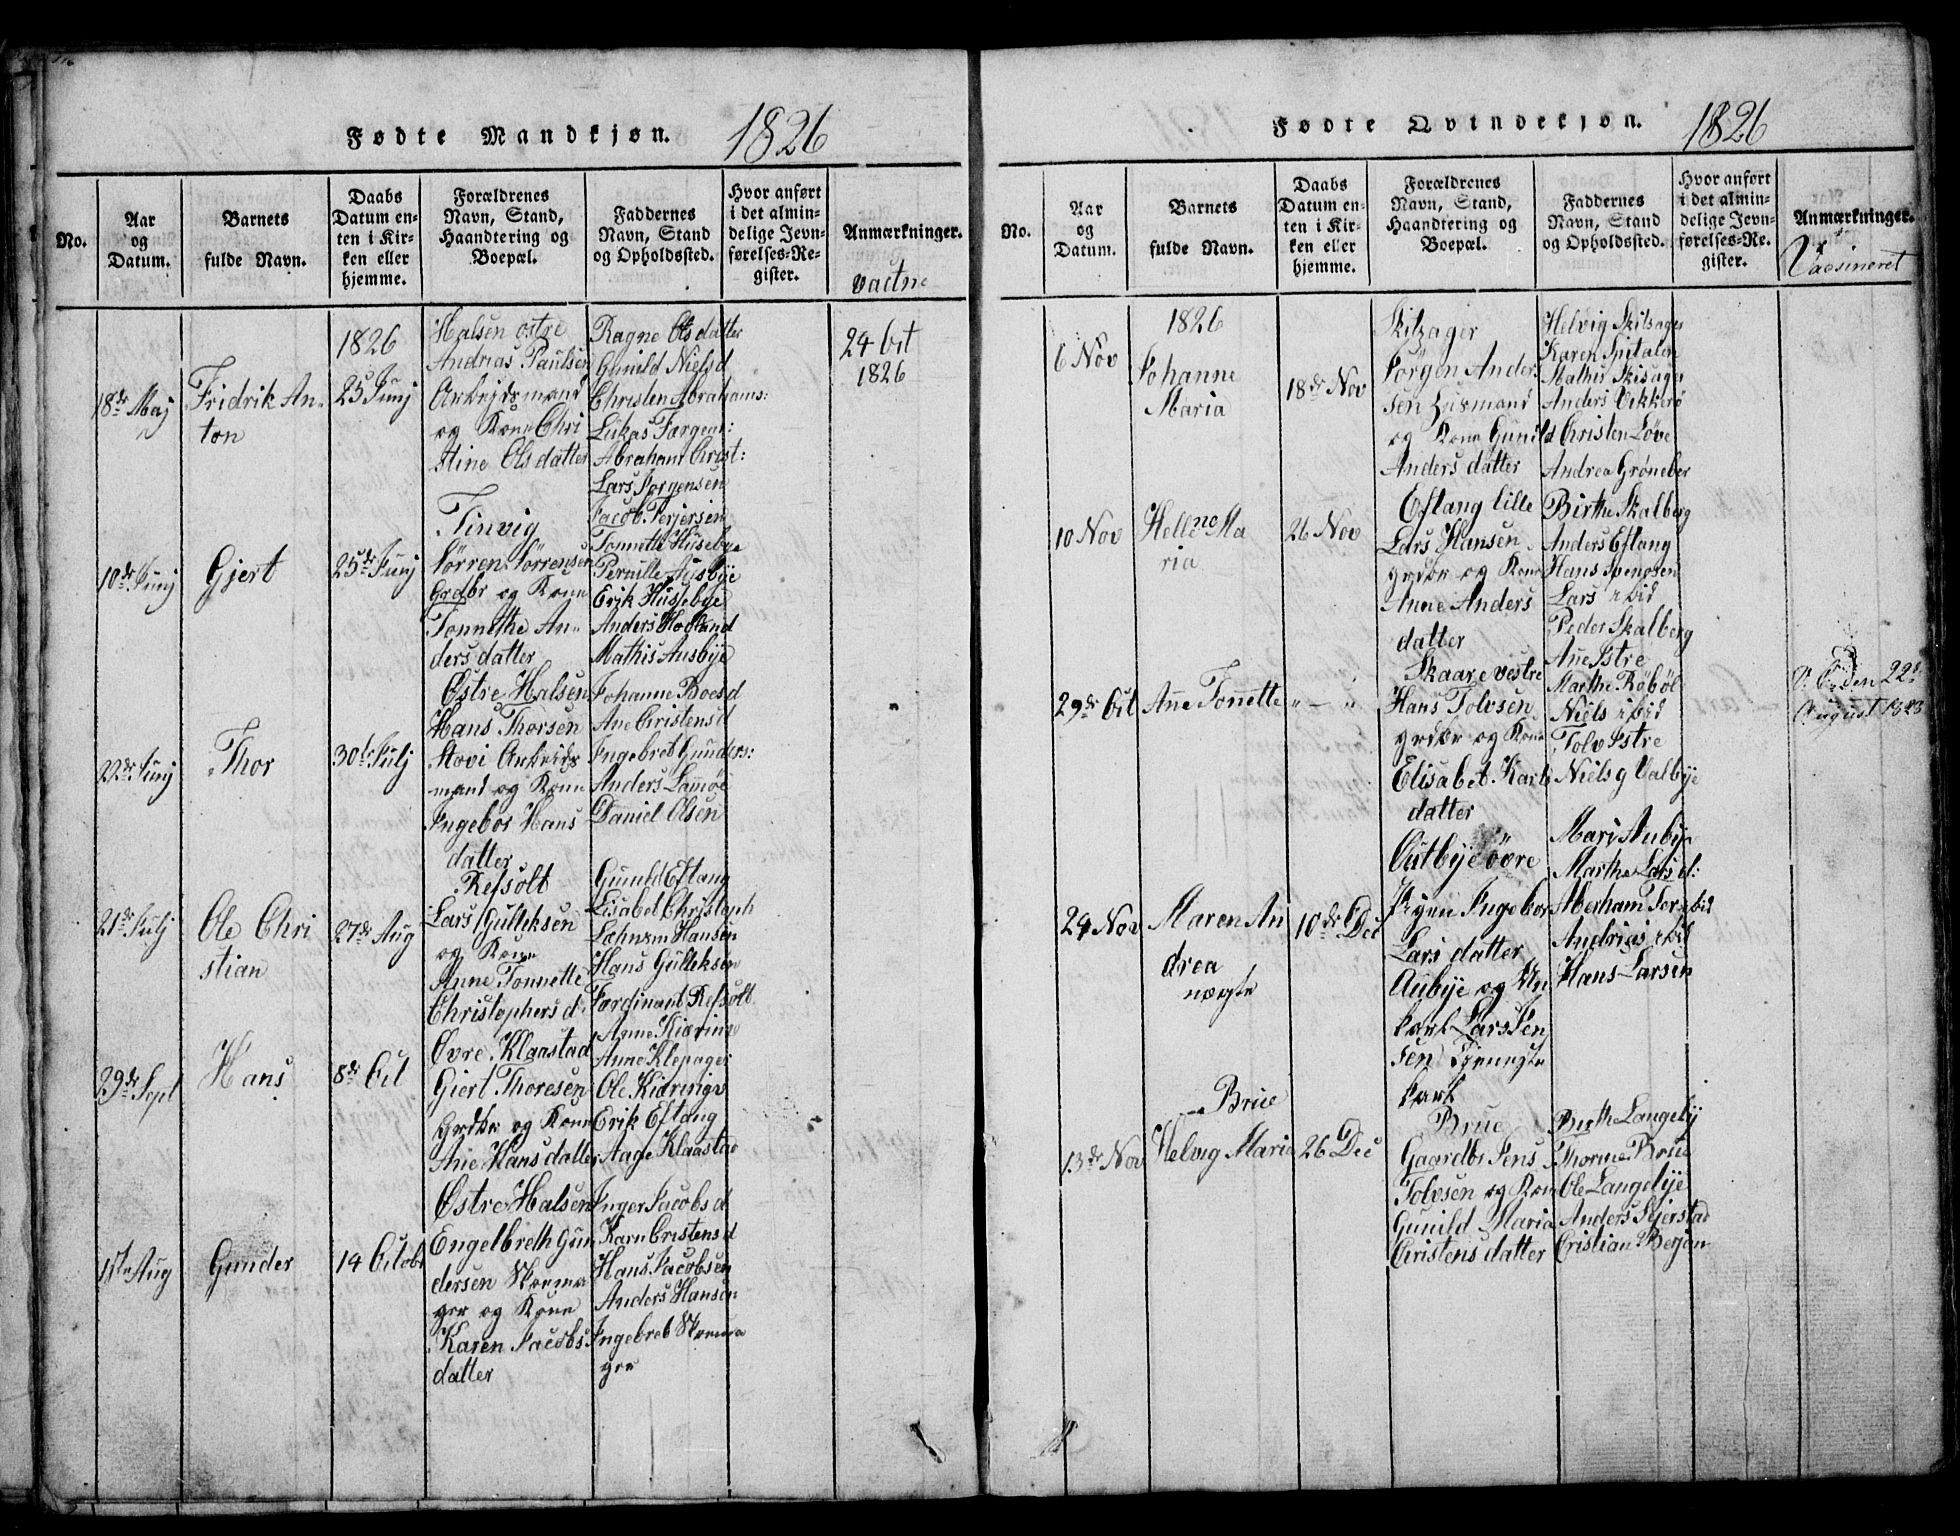 Fødte Mandkjøn. 1826
No.
Aar og Datum.
Barnets fulde Navn.
Daabs Datum enten i Kirken eller hjemme.
Forældrenes Navn, Stand, Haandtering og Boepæl.
Faddernes Navn, Stand og Opholdssted.
Hvor anført i det almindelige Jevnførelses-Register.
Anmærkninger.
18de Maj
Fridrik An-
ton
1826
25 Junj
Halsen østre
Andrias Paulsen
Arbeidsmand
og Kone Chri
stine Olsdatter
Ragne Olsdatter
Gunild Nielsd
Christen Abrahams:
Lukas
Abraham Crist:
Lars Jørgensen
24 Oct
1826
10de Junj
Gjert
25de Junj
Tinvig
Sørren Sørrensen
Grdbr og Kone
Tonnethe An-
dersdatter
Jacob Terjersen
Tonnette Husebye
Pernille Ausbye
Erik Hussebye
Anders Hovland
Mathis Ausbye
22de Junj
Thor
30te Julj
Østre Halsen
Hans Thorsen
Hovi Arbeids
mand og Kone
Ingebor Hans
datter
Johanne Boesd
Ane Cristensd
Ingebret Gunders:
Anders Lamøe
Daniel Olsen
21de Julj
Ole Chri
stian
27de Aug
Refsølt
Lars Gulleksen
og Kone
Anne Tonnette
Christophers d.
Gunild Eftang
Lisabet Christoph
Hansen
Hans Gulleksen
Ferdinant Refsølt
29de Sept
Hans
8de Oct
Øvre Klaastad
Giert Thoresen
Grdbr og Kone
Ane Hansdatter
Anne Kiæringe
Anne Klepager
Ole Kiæringe
Erik Eftang
Aage Klaastad
11te Aug
Gunder
14 Octobr
Østre Halsen
Engelbreth Gun
dersen Skoema
ger og Kone
Karen Jacobs
datter
Inger Jacobsd
Karn Cristensd
Hans Jacobsen
Anders Hansen
Ingebreb Skoema
ger
Fødte Qvindekjøn. 1826
No.
Aar og Datum.
Barnets fulde Navn.
Daabs Datum enten i Kirken eller hjemme.
Forældrenes Navn, Stand, Haandtering og Boepæl.
Faddernes Navn, Stand og Opholdssted.
Hvor anført i det almindelige Jevnførelses-Register.
Anmærkninger.
Vacsineret
6 Nov
1826
Johanne
Maria
18de Nov
Skilsager
Jørgen Ander
sen Husmand
og Kone Gunild
Anders datter
Helvig Skilsager
Karen Spitalen
Mathis Skisager
Anders Vekkerø
Cristen Løve
Andrea Grøneber
10 Nov
Hellene Ma
ria
26 Nov
Eftang lille
Lars Hansen
grdbr og Kone
Anne Anders
datter
Birthe Skalberg
Anders Eftang
Hans
Lars ibid
Peder Skalberg
29de Oct
Ane Tonette
" — "
Skaare vestre
Hans Tolvsen
grdbr og Kone
Elisabet Karls
datter
Ane Istre
Marthe Røbøl
Niels ibid
Tolv Istre
Niels g Valbye
22de
August 1828
24 Nov
Maren An
drea
uægte
10de Dec
Outbye övre
Pigen Ingebor
Lars datter
Aubye og Un
karl Lars Jen
sen Tjeneste
karl
Mari Aubye
Marthe Lars d:
Aberham Tor ibid
Andrias ibid
Hans Larsen
13de Nov
Brue
Helvig Maria
26 Dec
Brue
Gaardbr Jens
Tolvsen og Kone
Gunild Maria
Cristens datter
Birthe Langebÿ
Thorine Brue
Ole Langebye
Anders Sejerstad
Cristian Berjan